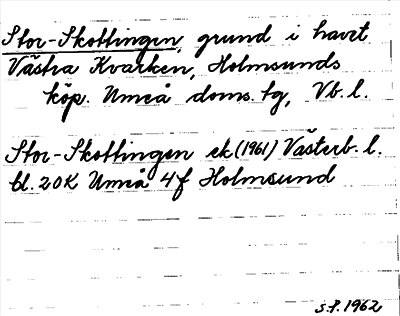 Stor-Skottingen, grund i havet
Västra Kvarken, Holmsunds
köp. Umeå doms. tg, Vb. l.
Stor-Skottingen ek (1961) Västerb. l.
bl. 20K Umeå 4f Holmsund
S.P. 1962